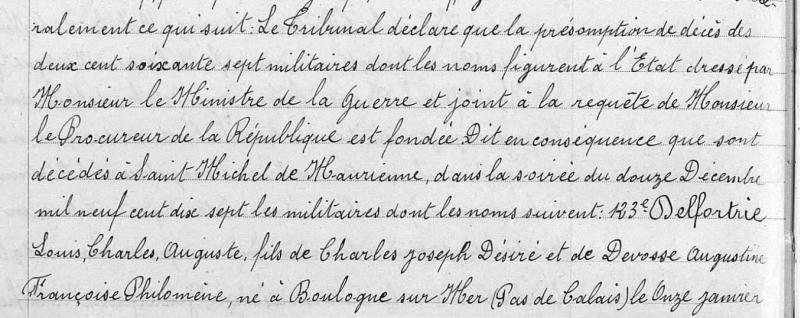 ralement ce qui suit: Le Tribunal déclare que la présomption de décès des
deux cent soixante sept militaires dont les noms figurent à l'Etat dressé par
Monsieur le Ministre de la Guerre et joint à la requête de Monsieur
le Procureur de la République est fondée Dit en conséquence que sont
décédés à Saint Michel de Maurienne, dans la soirée du douze Décembre
mil neuf cent dix sept les militaires dont les noms suivent: 123e Delfortrie
Louis, Charles, Auguste, fils de Charles Joseph Désiré et de Devosse Augustine
Françoise Philomène, né à Boulogne sur Mer (Pas de Calais) le Onze janvier